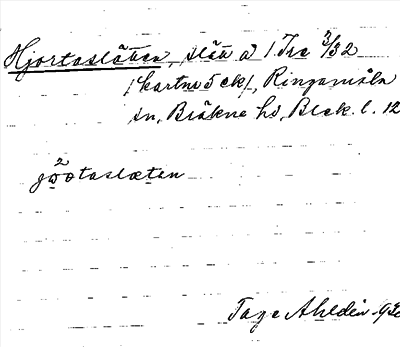 Hjortaslätten, slätt å 1 Tre 3/32
/kartne 5 ck/, Ringamåla
sn, Bräkne hd, Blek. l. 12
2
jwotaslætan
Tage Ahldén 1930